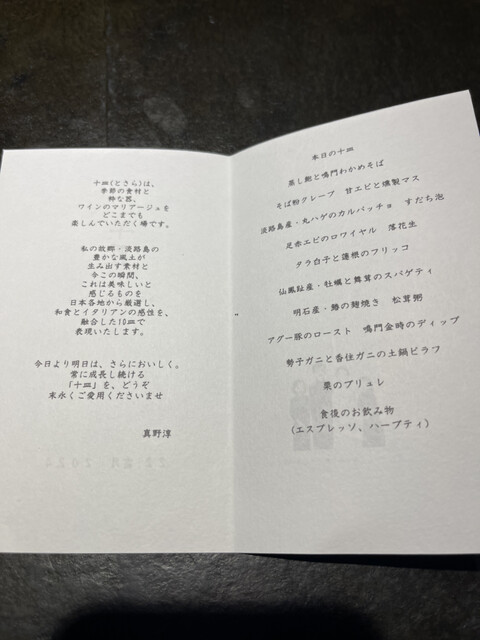 十皿(とさら)は、
季節の食材と
粋な器、
ワインのマリアージュを
どこまでも
楽しんでいただく場です。
私の故郷・淡路島の
豊かな風土が
生み出す素材と
今この瞬間、
これは美味しいと
感じるものを
日本各地から厳選し、
和食とイタリアンの感性を、
融合した10皿で
表現いたします。
今日より明日は、さらにおいしく。
常に成長し続ける
「十皿」を、どうぞ
末永くご愛用くださいませ
真野淳
本日の十皿
蒸し鮑と鳴門わかめそば
そば粉クレープ 甘エビと燻製マス
淡路島産・丸ハゲのカルパッチョ すだち泡
足赤エビのロワイヤル 落花生
タラ白子と蓮根のフリッコ
仙鳳趾産・牡蠣と舞茸のスパゲティ
明石産・鰆の麹焼き 松茸粥
アグー豚のロースト 鳴門金時のディップ
勢子ガニと香住ガニの土鍋ピラフ
栗のブリュレ
食後のお飲み物
(エスプレッソ、ハーブティ)